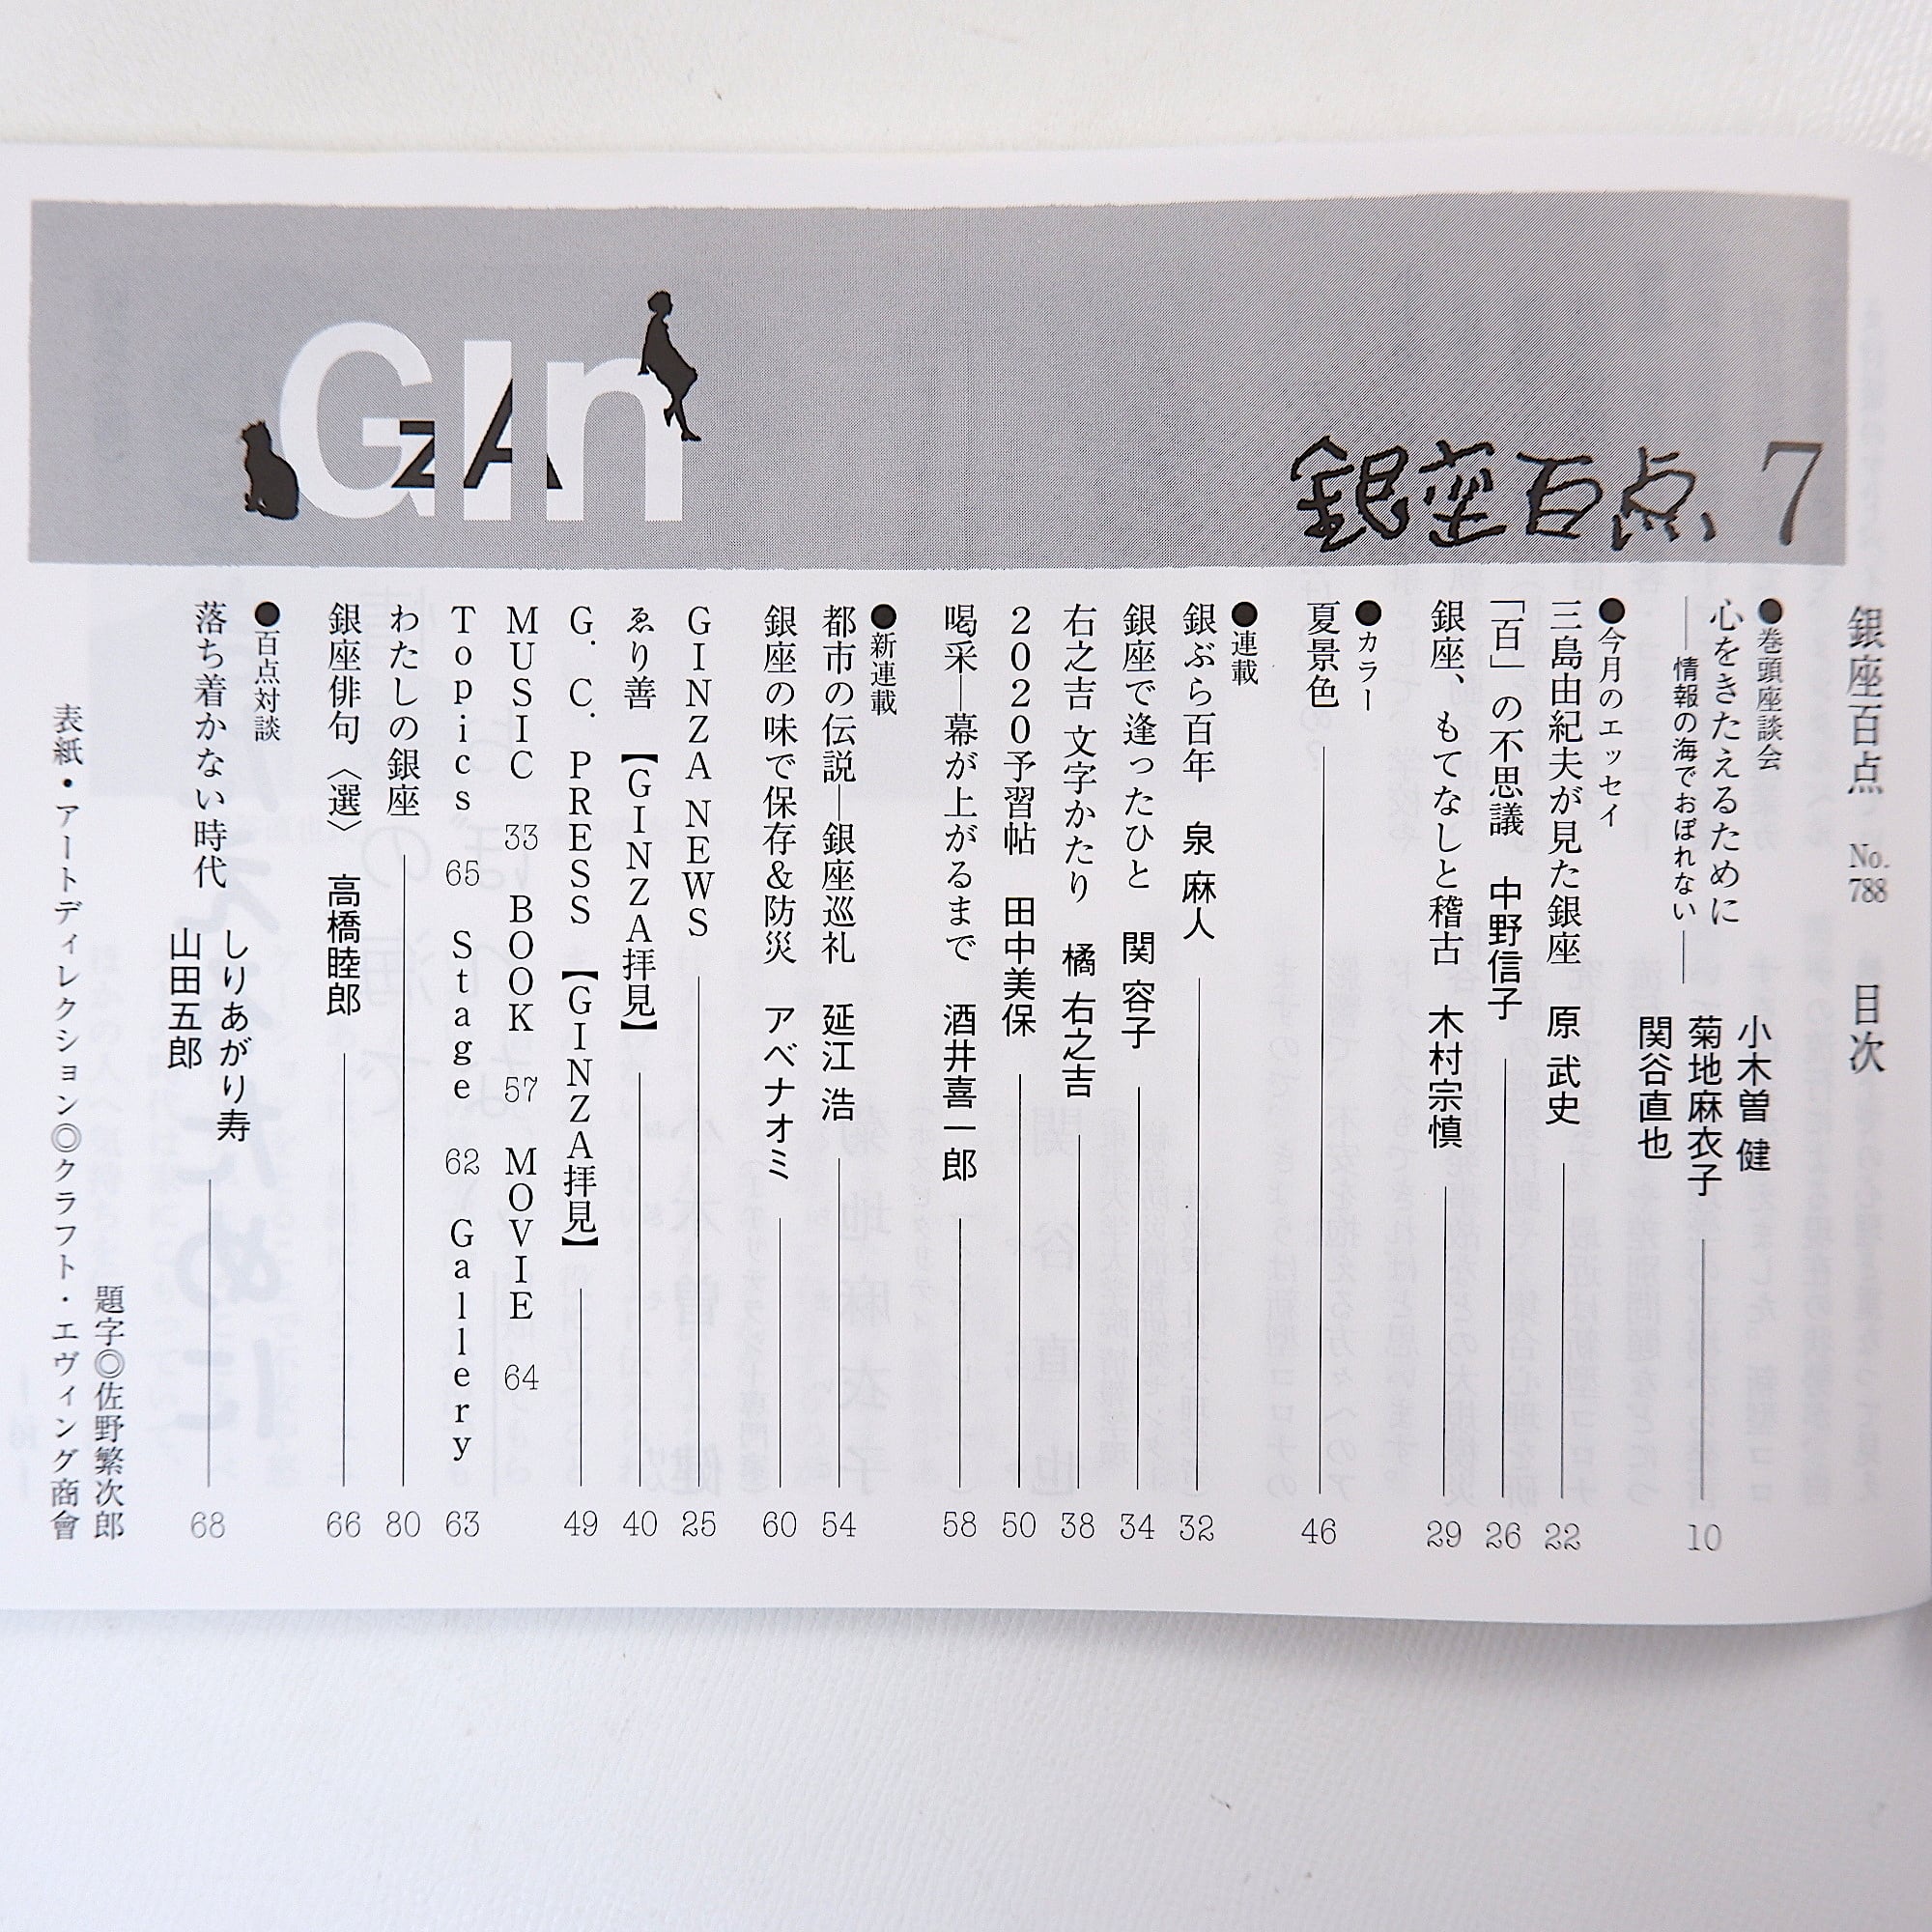 GIn
zA
銀座百点 7
銀座百点 No.788 目次
●巻頭座談会
心をきたえるために
―情報の海でおぼれない―
小木曽 健
菊地麻衣子
関谷直也
10
●今月のエッセイ
三島由紀夫が見た銀座 原 武史 22
「百」の不思議 中野信子 26
銀座、もてなしと稽古 木村宗慎 29
●カラー
夏景色 46
●連載
銀ぶら百年 泉 麻人 32
銀座で逢ったひと 関 容子 34
右之吉 文字かたり 橘 右之吉 38
2020予習帖 田中美保 50
喝采―幕が上がるまで 酒井喜一郎 58
●新連載
都市の伝説―銀座巡礼 延江 浩 54
銀座の味で保存&防災 アベナオミ 60
GINZA NEWS 25
ゑり善 【GINZA拝見】 40
G. C. PRESS 【GINZA拝見】 49
MUSIC 33 BOOK 57 MOVIE 64
Topics 65 Stage 62 Gallery 63
わたしの銀座 80
銀座俳句〈選〉 高橋睦郎 66
●百点対談
落ち着かない時代
しりあがり寿
山田五郎
68
題字◎佐野繁次郎
表紙・アートディレクション◎クラフト・エヴィング商會